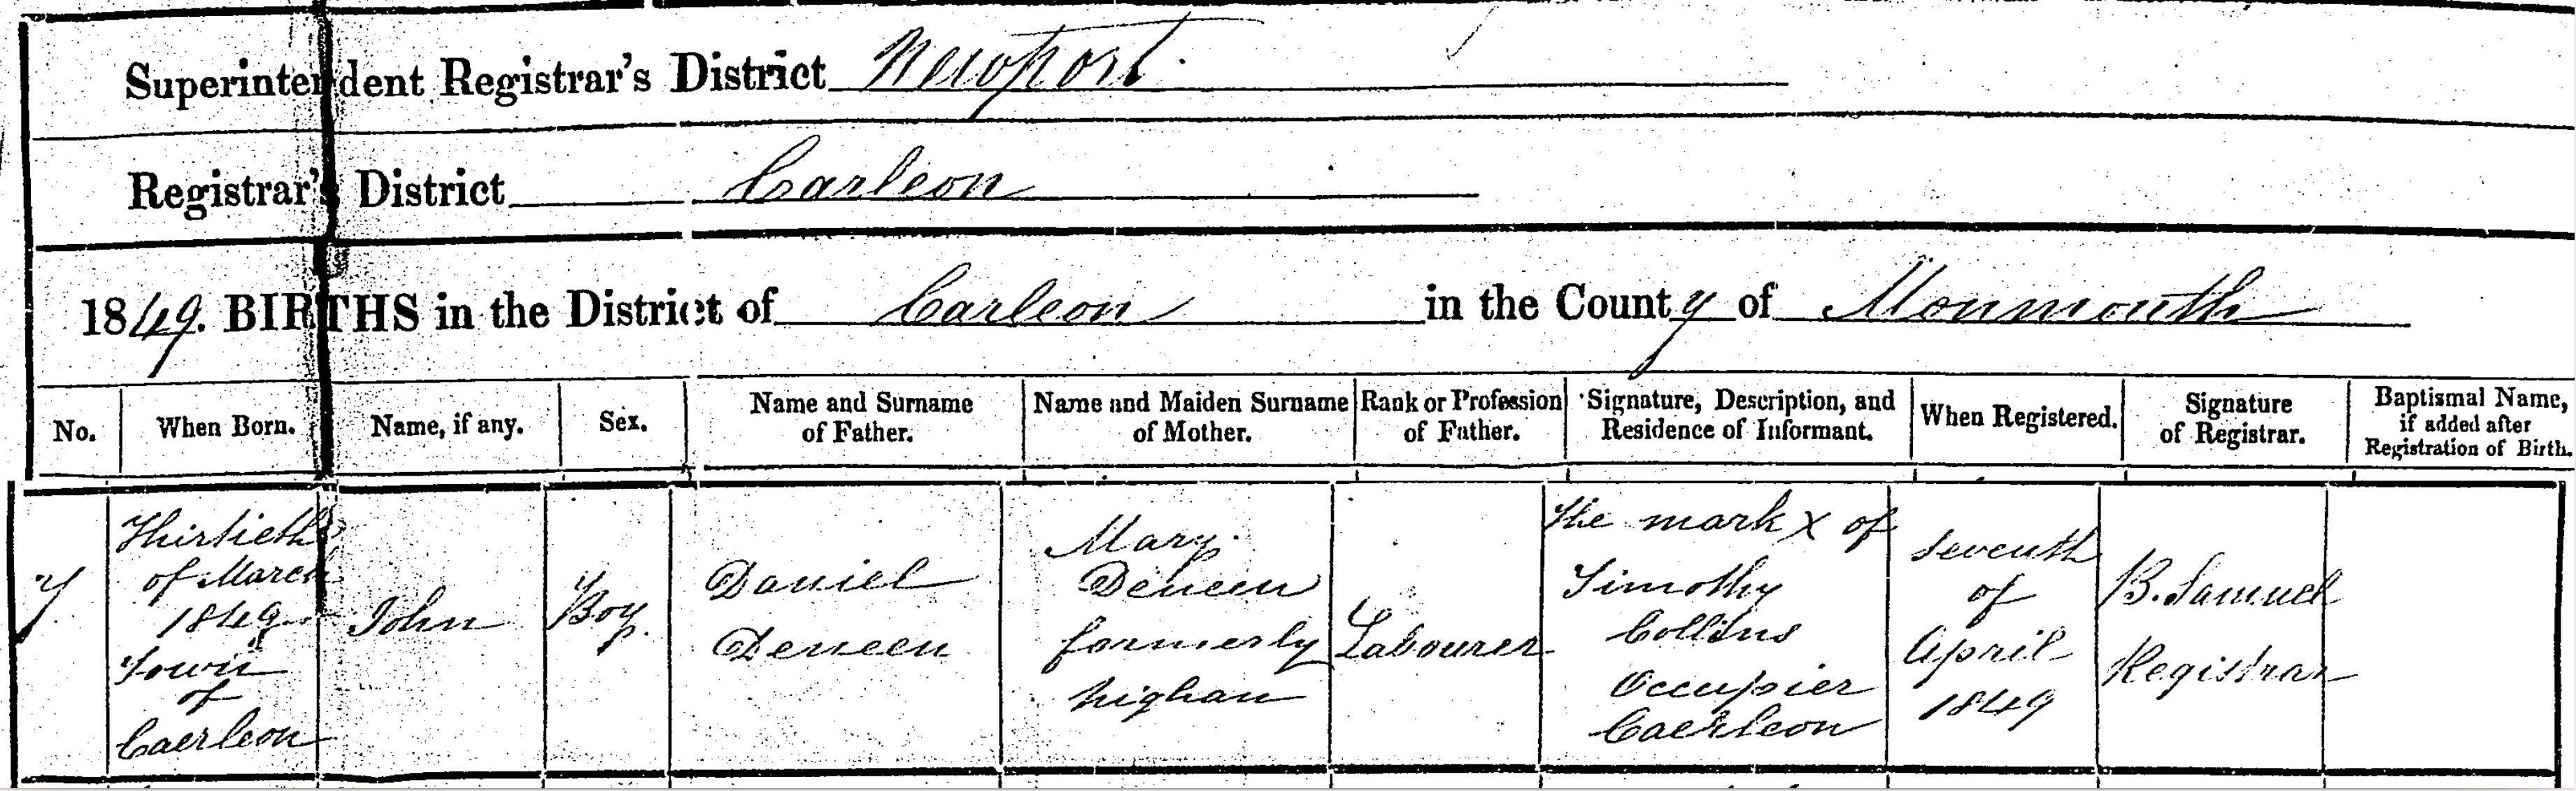 Superintendent Registrar's District Newport.
Registrar's District Carleon
1849. BIRTHS in the District of Carleon in the County of Monmouth
No. When Born. Name, if any. Sex. Name and Surname of Father. Name and Maiden Surname of Mother. Rank or Profession of Father. Signature, Description, and Residence of Informant. When Registered. Signature of Registrar. Baptismal Name, if added after Registration of Birth.
7
Thirtieth
of March
1849
Town
of
Caerleon
John
Boy.
Daniel
Deneen
Mary
Deneen
formerly
highan
Labourer
The mark X of
Timothy
Collins
Occupier
Caerleon
Seventh
of
April
1849
B. Samuel
Registrar